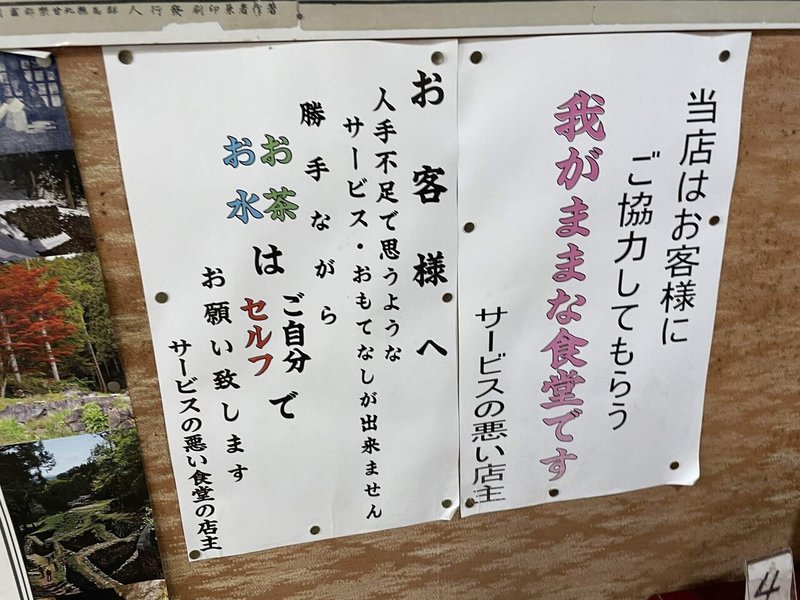 著作者兼印刷発行人
当店はお客様に
ご協力してもらう
我がままな食堂です
サービスの悪い店主
お客様へ
人手不足で思うような
サービス・おもてなしが出来ません
勝手ながら
お茶
お水
は
ご自分で
セルフ
お願い致します
サービスの悪い食堂の店主
4